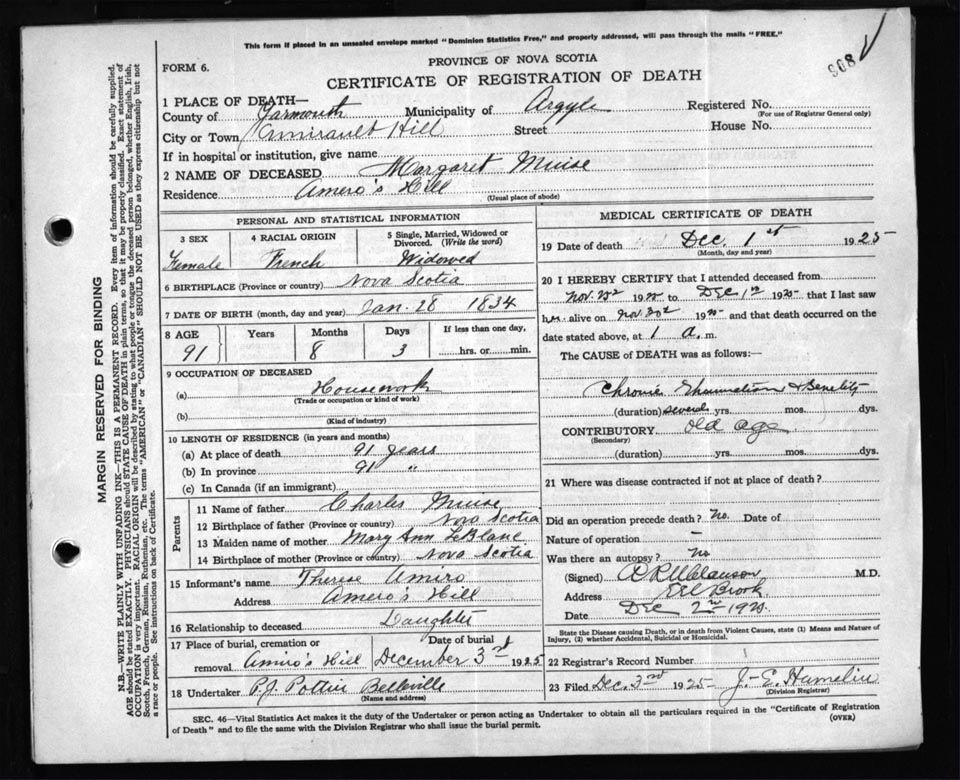 This form if placed in an unsealed envelope marked "Dominion Statistics Free," and properly addressed, will pass through the mails "FREE."
PROVINCE OF NOVA SCOTIA
FORM 6.
908
CERTIFICATE OF REGISTRATION OF DEATH
1 PLACE OF DEATH—
County of Yarmouth Municipality of Argyle Registered No.
(For use of Registrar General only)
City or Town Amirault Hill Street House No.
If in hospital or institution, give name
2 NAME OF DECEASED Margaret Muise
Residence Amero's Hill
(Usual place of abode)
PERSONAL AND STATISTICAL INFORMATION
3 SEX 4 RACIAL ORIGIN 5 Single, Married, Widowed or Divorced. (Write the word)
Female French Widowed
6 BIRTHPLACE (Province or country) Nova Scotia
7 DATE OF BIRTH (month, day and year) Jan. 28 1834
8 AGE Years Months Days If less than one day,
91 8 3 hrs. or min.
9 OCCUPATION OF DECEASED
(a) Housework
(Trade or occupation or kind of work)
(b)
(Kind of industry)
10 LENGTH OF RESIDENCE (in years and months)
(a) At place of death 91 years
(b) In province 91 "
(c) In Canada (if an immigrant)
Parents
11 Name of father Charles Muise
12 Birthplace of father (Province or country) Nova Scotia
13 Maiden name of mother Mary Ann LeBlanc
14 Birthplace of mother (Province or country) Nova Scotia
15 Informant's name Therese Amiro
Address Amero's Hill
16 Relationship to deceased Daughter
17 Place of burial, cremation or removal Amiro's Hill
Date of burial December 3rd 1925
18 Undertaker P.J. Pottie Belleville
(Name and address)
MEDICAL CERTIFICATE OF DEATH
19 Date of death Dec. 1st 1925
(Month, day and year)
20 I HEREBY CERTIFY that I attended deceased from
Nov. 22 1925 to Dec 1st 1925 that I last saw
her alive on Nov 30th 1925 and that death occurred on the
date stated above, at 1 a. m.
The CAUSE of DEATH was as follows:
Chronic Rheumatism &
(duration) several yrs. mos. dys.
CONTRIBUTORY old age
(Secondary)
(duration) yrs. mos. dys.
21 Where was disease contracted if not at place of death?
Did an operation precede death? No. Date of
Nature of operation –
Was there an autopsy? No
(Signed) M.D.
Address Eel Brook
Date Dec 2nd 1925
State the Disease causing Death, or in death from Violent Causes, state (1) Means and Nature of Injury, (2) whether Accidental, Suicidal or Homicidal.
22 Registrar's Record Number
23 Filed Dec. 3rd 1925 J.-E. Hamelin
(Division Registrar)
SEC. 46—Vital Statistics Act makes it the duty of the Undertaker or person acting as Undertaker to obtain all the particulars required in the "Certificate of Registration
of Death" and to file the same with the Division Registrar who shall issue the burial permit. (OVER)
MARGIN RESERVED FOR BINDING
N.B.—WRITE PLAINLY WITH UNFADING INK—THIS IS A PERMANENT RECORD. Every item of information should be carefully supplied.
AGE should be stated EXACTLY. PHYSICIANS should STATE CAUSE OF DEATH in plain terms, so that it may be properly classified. Exact statement of
OCCUPATION is very important. RACIAL ORIGIN will be described by stating to what people or tongue the deceased person belonged, whether English, Irish,
Scotch, French, German, Russian, Ruthenian, etc. The terms "AMERICAN" or "CANADIAN" SHOULD NOT BE USED as they express citizenship but not
a race or people. See instructions on back of Certificate.